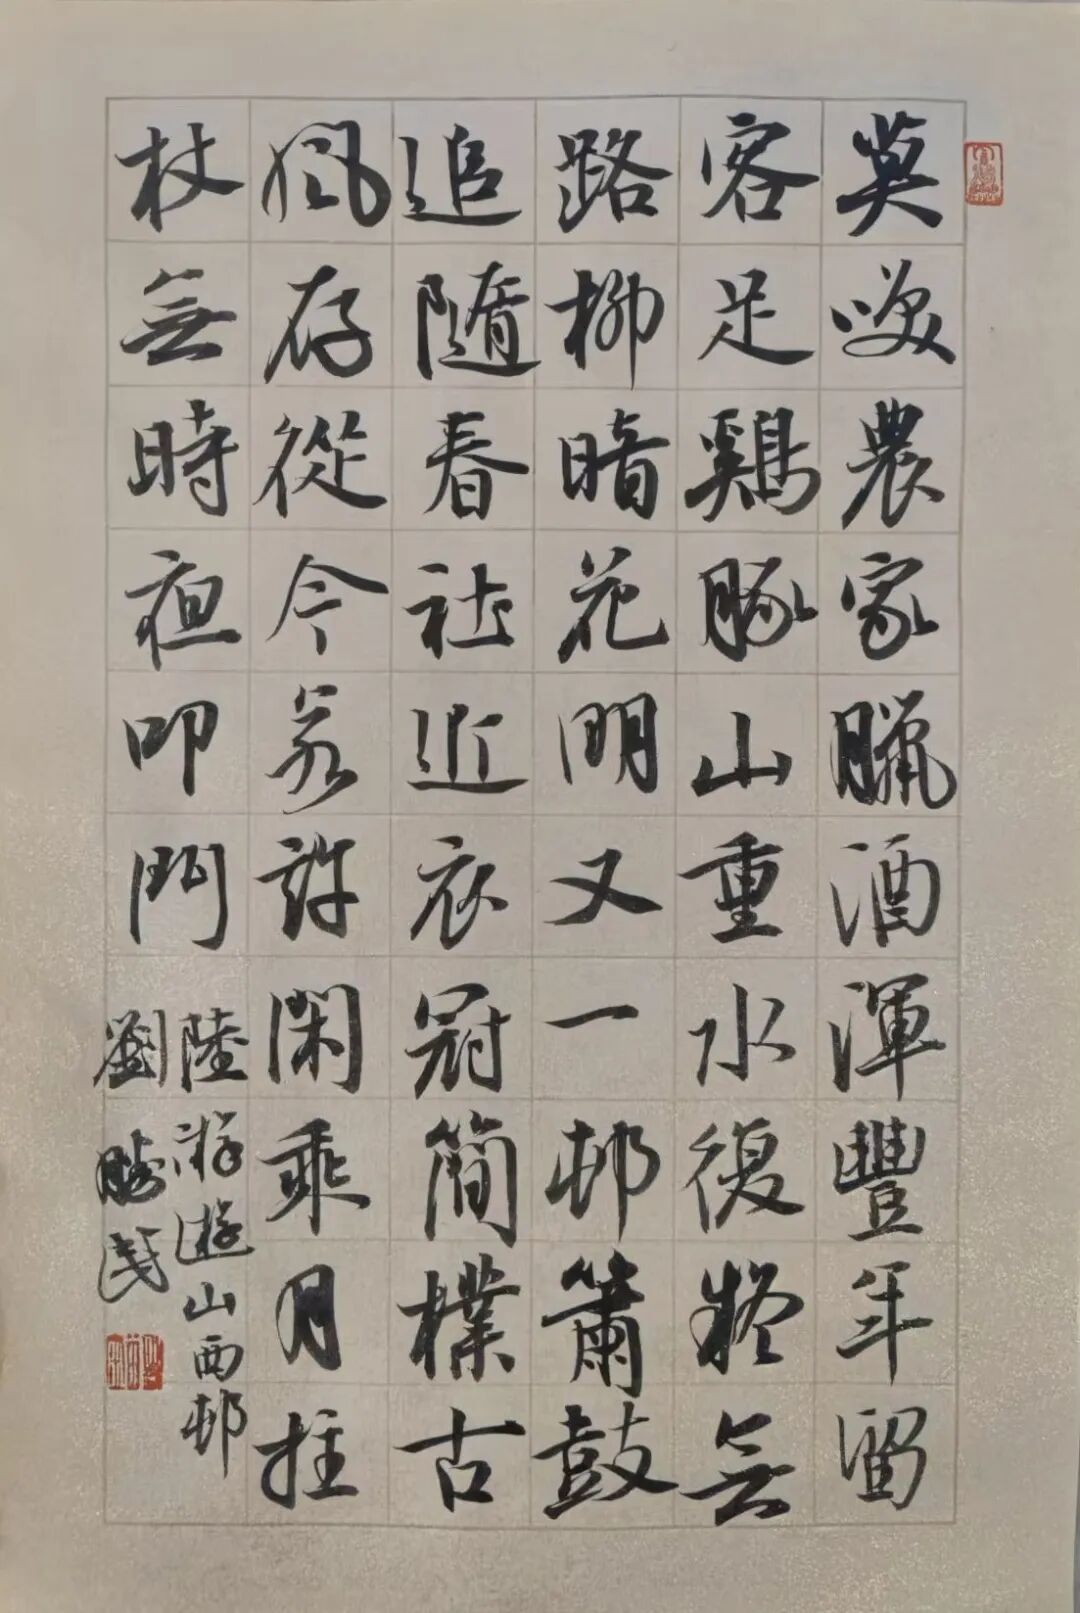 莫咲農家臘酒渾豐年留
客足鷄豚山重水復疑無
路柳暗花明又一邨簫鼓
追隨春社近衣冠簡樸古
風存從今若許閑乘月拄
杖無時夜叩門
陸游遊山西邨
劉勝